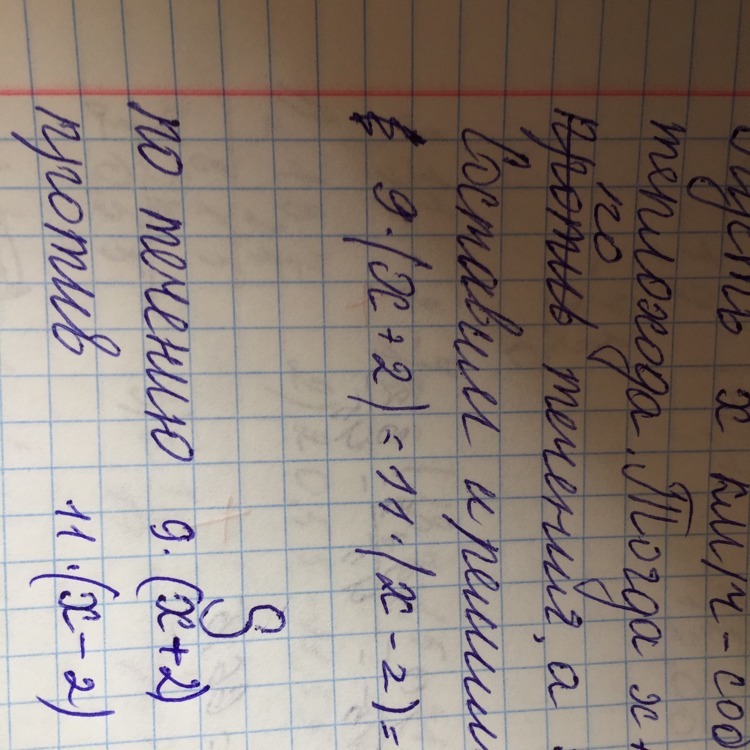 х км/ч - соб
теплохода. Тогда х+
по
против течения, а
Составим и решим
9·(х+2)=11·(х-2)=
S
по течению 9·(х+2)
против 11·(х-2)